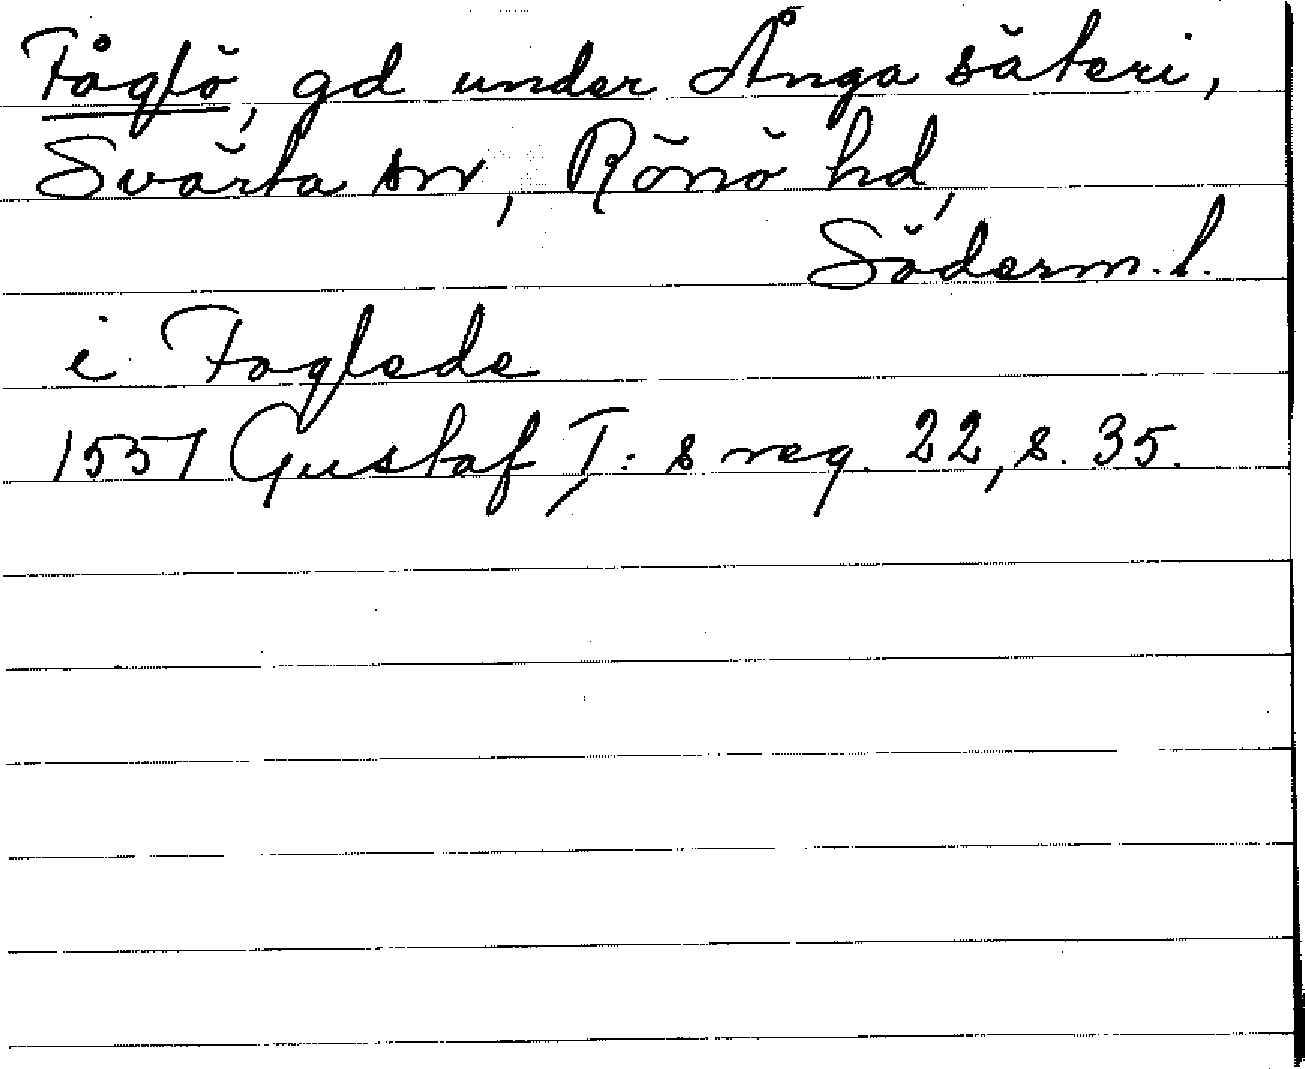 Fåglö, gd under Ånga säteri,
Svärta sn, Rönö hd,
Söderm. l.
i Foglede
1551 Gustaf I: s reg. 22, s. 35.